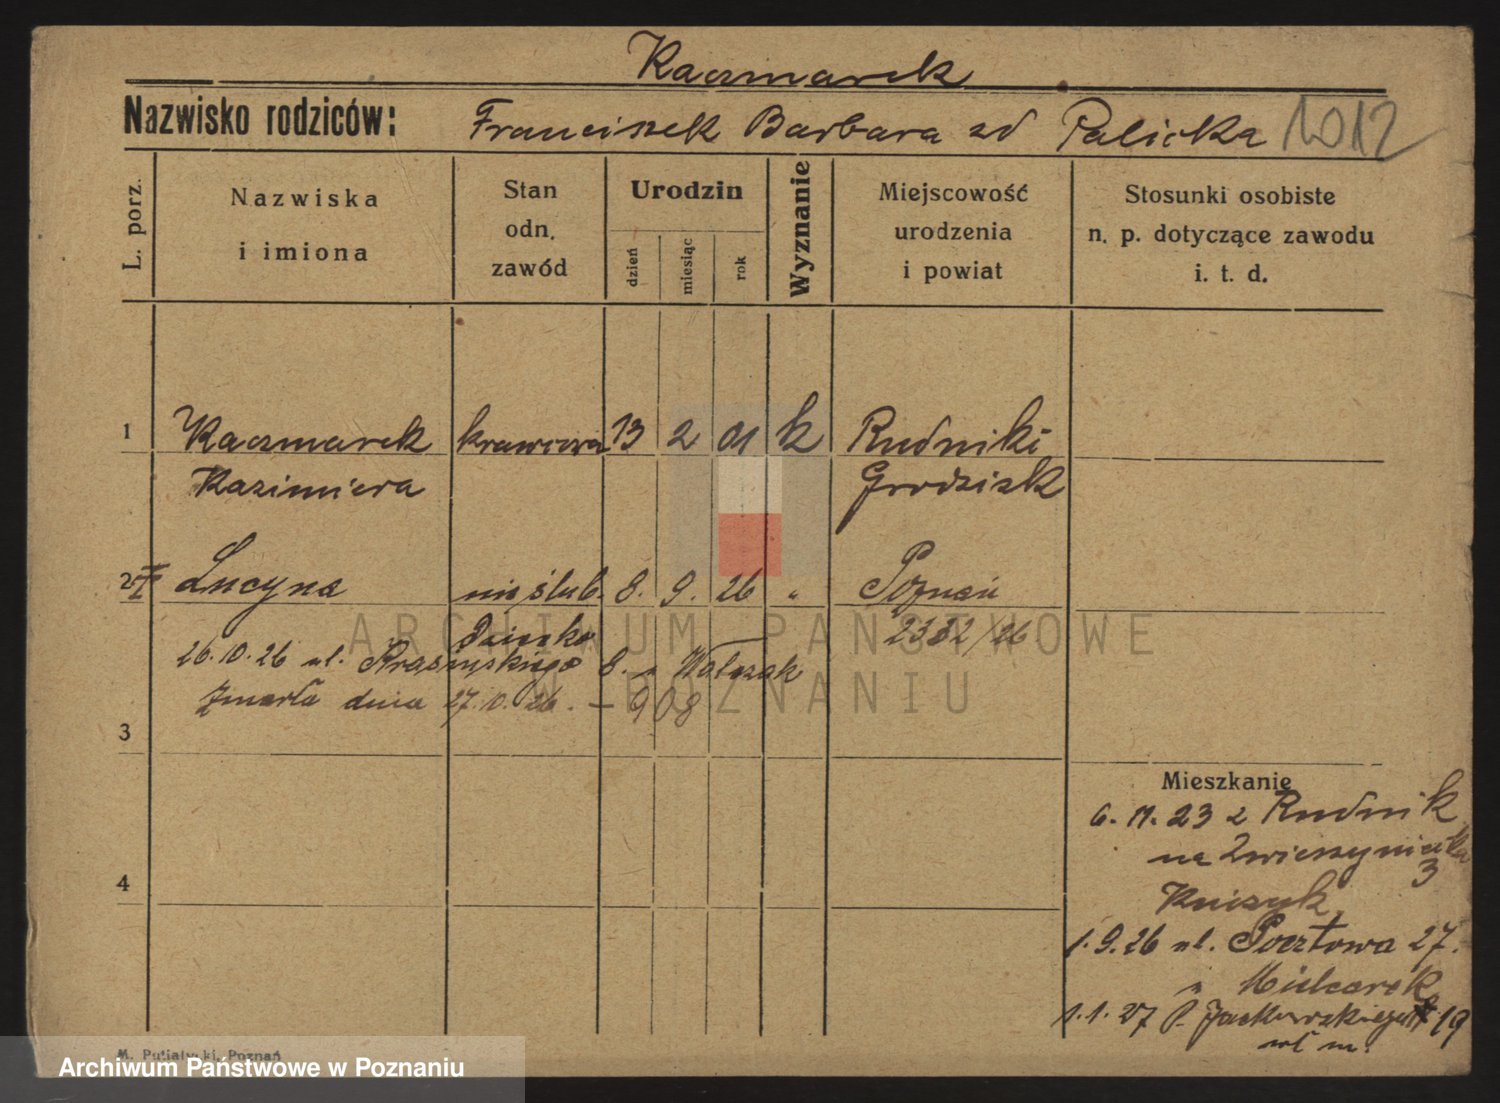 Kaczmarek
Nazwisko rodziców: Franciszek Barbara zd Palicka 1012
L. porz.
Nazwiska i imiona
Stan odn. zawód
Urodzin
dzień miesiąc rok
Wyznanie
Miejscowość urodzenia i powiat
Stosunki osobiste n. p. dotyczące zawodu i. t. d.
1 Kaczmarek krawcowa 13 2 01 k Rudniki
Kazimiera Grodzisk
2 Lucyna nieślub. 8. 9. 26 " Poznań
dziecko 2332/26
ARCHIWUM PAŃSTWOWE
26.10.26 ul. Krasińskiego 8. u Walczak
W POZNANIU
Zmarła dnia 27.10.26. – 908
3
Mieszkanie
6. 11. 23 z Rudnik
na Zwierzyniecka
3
4
1. 9. 26 ul. Pocztowa 27.
u Mielcarek
1. 1. 27 P. Jackowskiego 19
wł m.
M. Putiatycki, Poznań
Archiwum Państwowe w Poznaniu